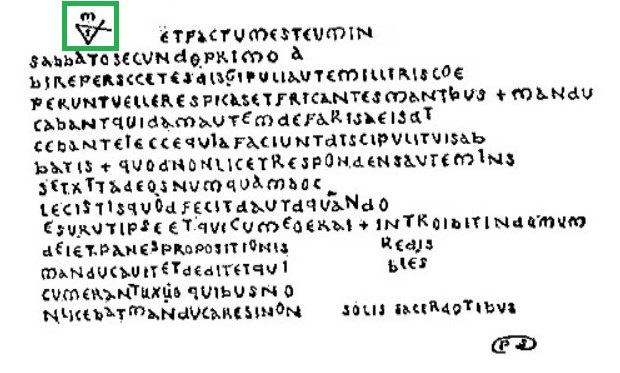 ETFACTUMESTEUMIN
SABBATOSECUNDOPRIMO A
BIREPERSCCETESDISCIPULIAUTEMILLITRISCOE
PERUNTVELLERESPICASETFRICANTESMANTBUS + MANDU
CABANTQUIDAMAUTEMDEFARISAEISDT
CEBANTEIECCEQUIAFACIUNTDISCIPULITUISAB
BATIS + QUODNONLICETRESPONDENSAUTEMINS
SETXTTADEOSNUMQUAMBOC
LECISTISQUODFECITDAUTDQUANDO
ESURUTIPSEETQUICUMEOERAI + INTROIBITINDOMUM
DEIETPANESPROPOSITIONIS REDIS
MANDUCAUITETDEDITETQUI BLES
CUMERANTUXUO QUIBUSNO
NLICEBATMANDUCARESINON SOLIS SACERDOTIBUS
PS